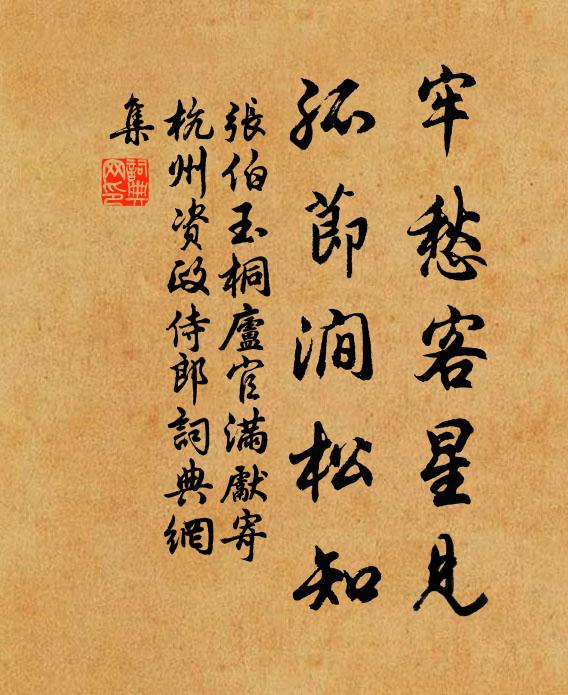 牢愁客星見
孤節澗松知
張伯玉桐廬官滿獻寄
杭州资政侍郎詞典網
集
詞典网印